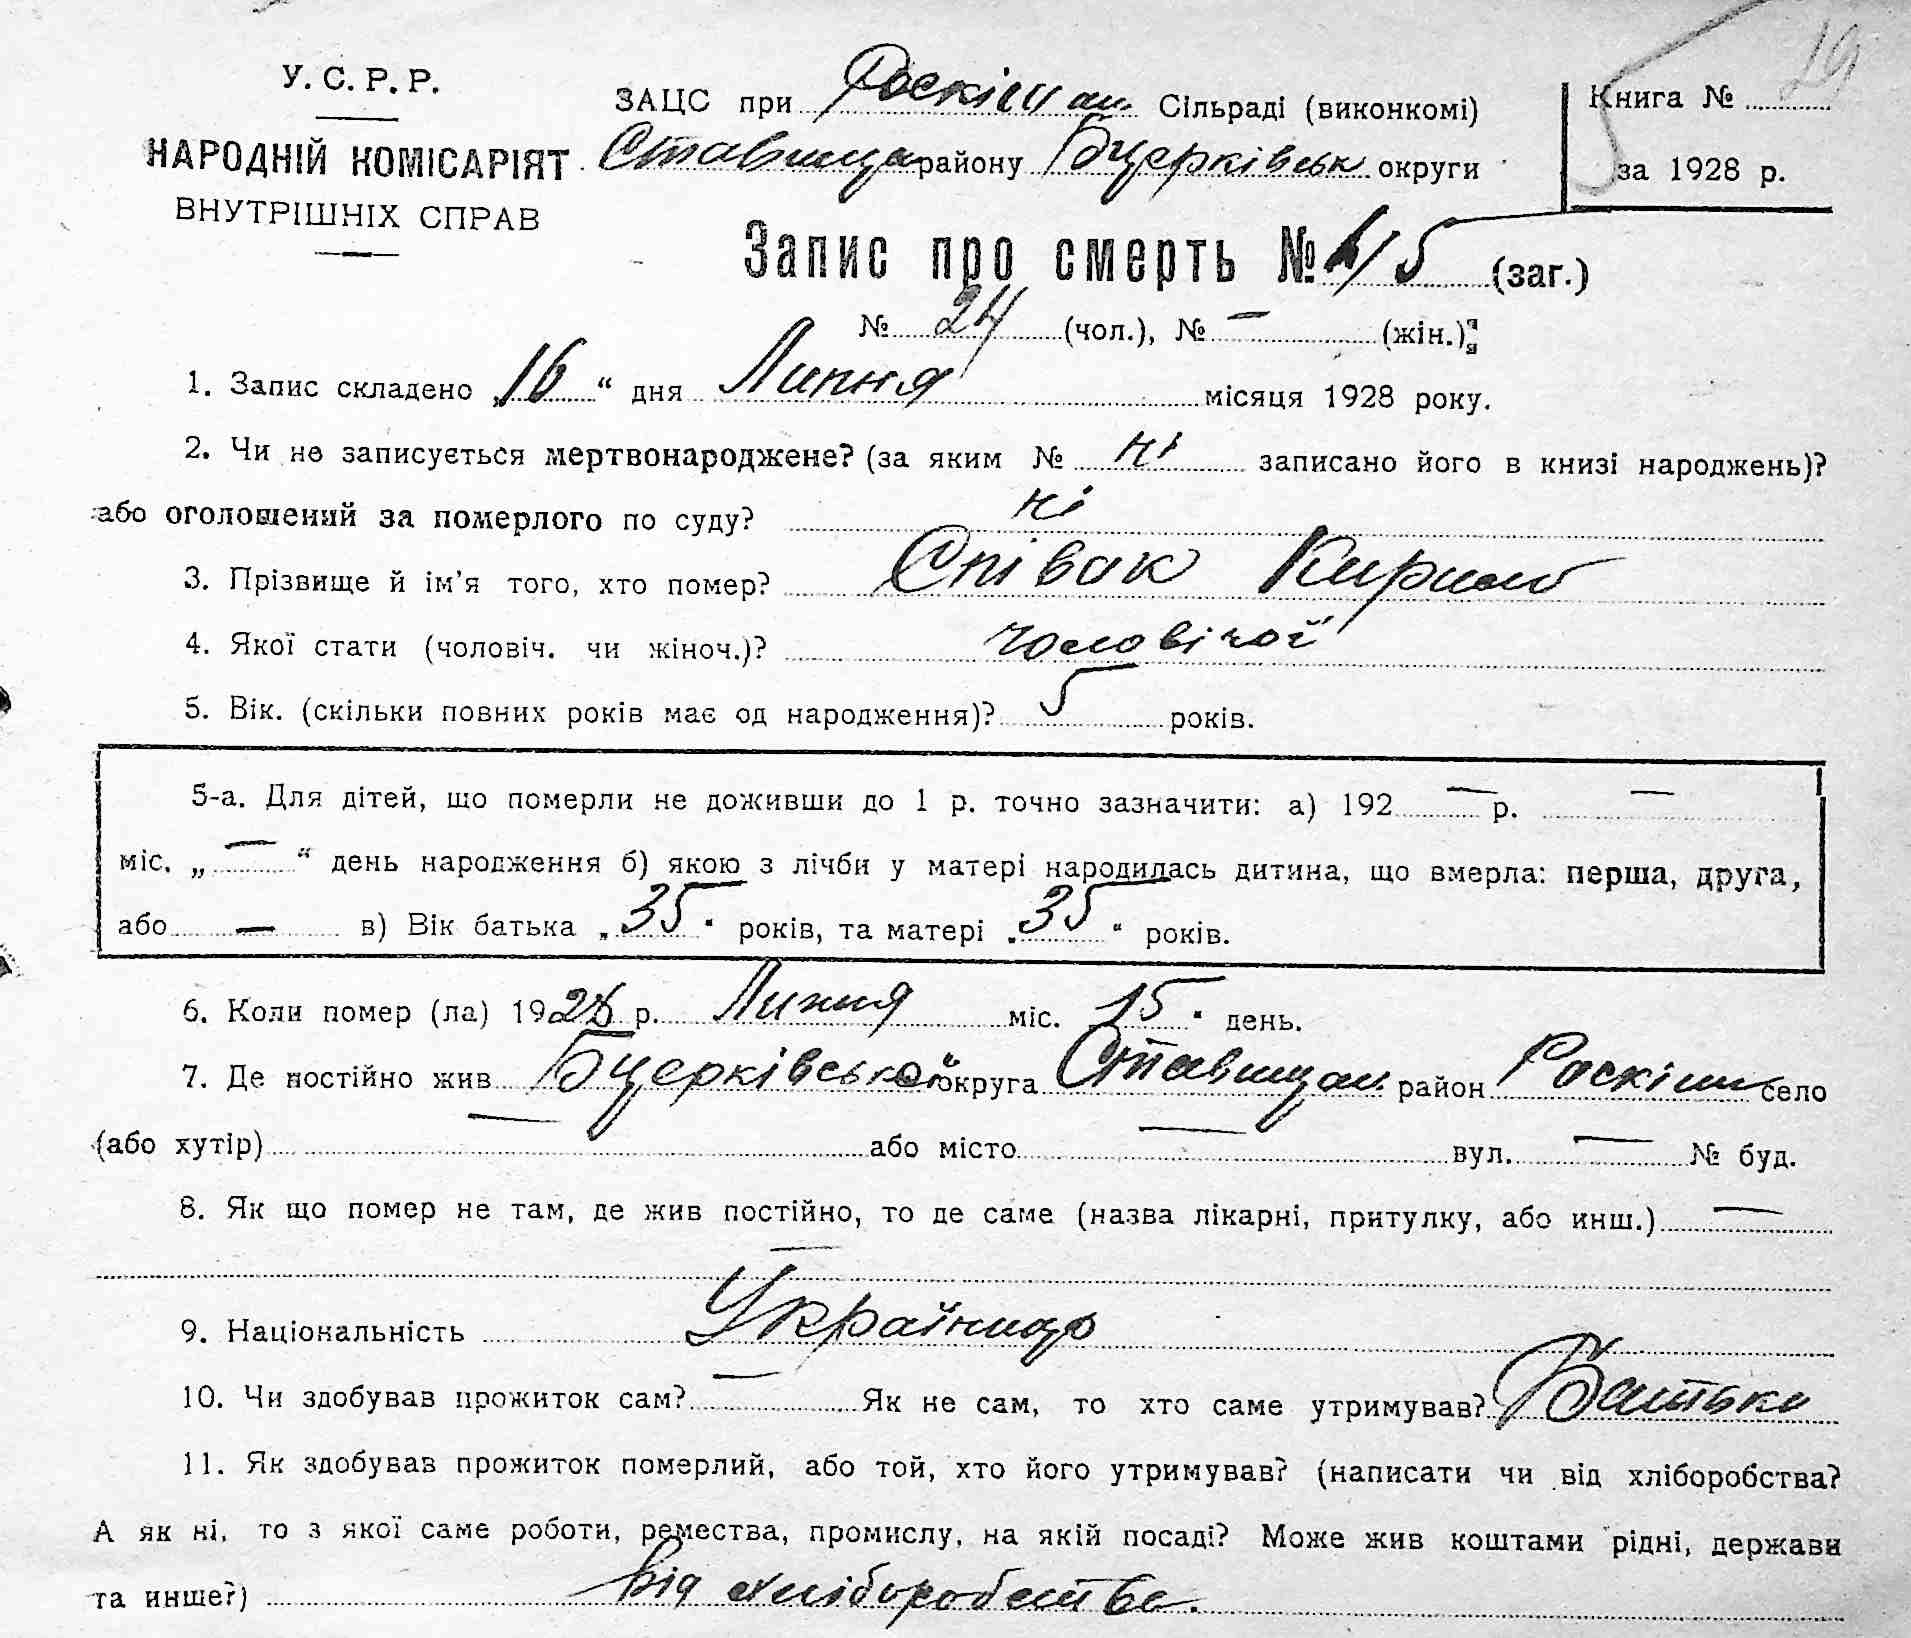 У. С. Р. Р.
НАРОДНІЙ КОМІСАРІЯТ
ВНУТРІШНІХ СПРАВ
ЗАЦС при Роскішан. Сільраді (виконкомі)
Ставища району Бцерківськ округи
Книга №
за 1928 р.
Запис про смерть № 45 (заг.)
№ 24 (чол.), № — (жін.)
1. Запис складено „16“ дня Липня місяця 1928 року.
2. Чи не записується мертвонароджене? (за яким № ні записано його в книзі народжень)?
або оголошений за померлого по суду? ні
3. Прізвище й ім’я того, хто помер? Співак Кирило
4. Якої стати (чоловіч. чи жіноч.)? чоловічої
5. Вік. (скільки повних років має од народження)? 5 років.
5-а. Для дітей, що померли не доживши до 1 р. точно зазначити: а) 192 — р. —
міс. „ — “ день народження б) якою з лічби у матері народилась дитина, що вмерла: перша, друга,
або — в) Вік батька „35“ років, та матері „35“ років.
6. Коли помер (ла) 1928 р. Липня міс. 15“ день.
7. Де постійно жив Бцерківської округа Ставищан. район Роскішн село
(або хутір) — або місто — вул. — № буд.
8. Як що помер не там, де жив постійно, то де саме (назва лікарні, притулку, або инш.) —
—
9. Національність Українцр
10. Чи здобував прожиток сам? — Як не сам, то хто саме утримував? Батько
11. Як здобував прожиток померлий, або той, хто його утримував? (написати чи від хліборобства?
А як ні, то з якої саме роботи, ремества, промислу, на якій посаді? Може жив коштами рідні, держави
та инше?) від хліборобства.